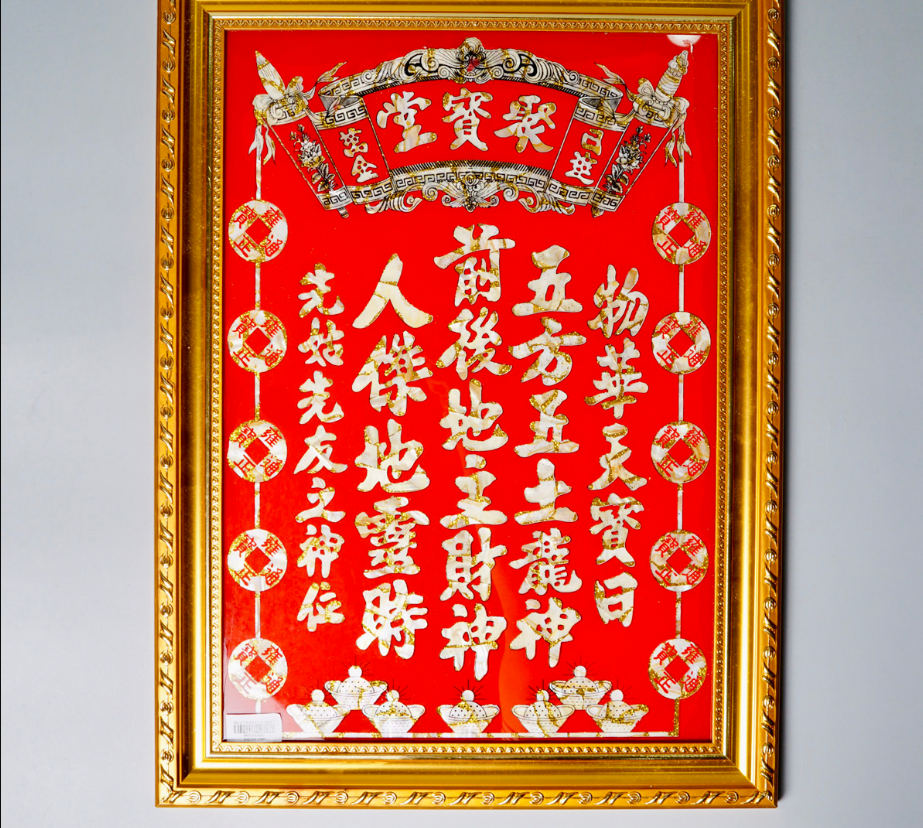 聚寶堂
萬金
物華天寶日
五方五土龍神
前後地主財神
人傑地靈時
先姑先友之神位
雍正通寶
雍正通寶
雍正通寶
雍正通寶
雍正通寶
雍正通寶
雍正通寶
雍正通寶
雍正通寶
雍正通寶